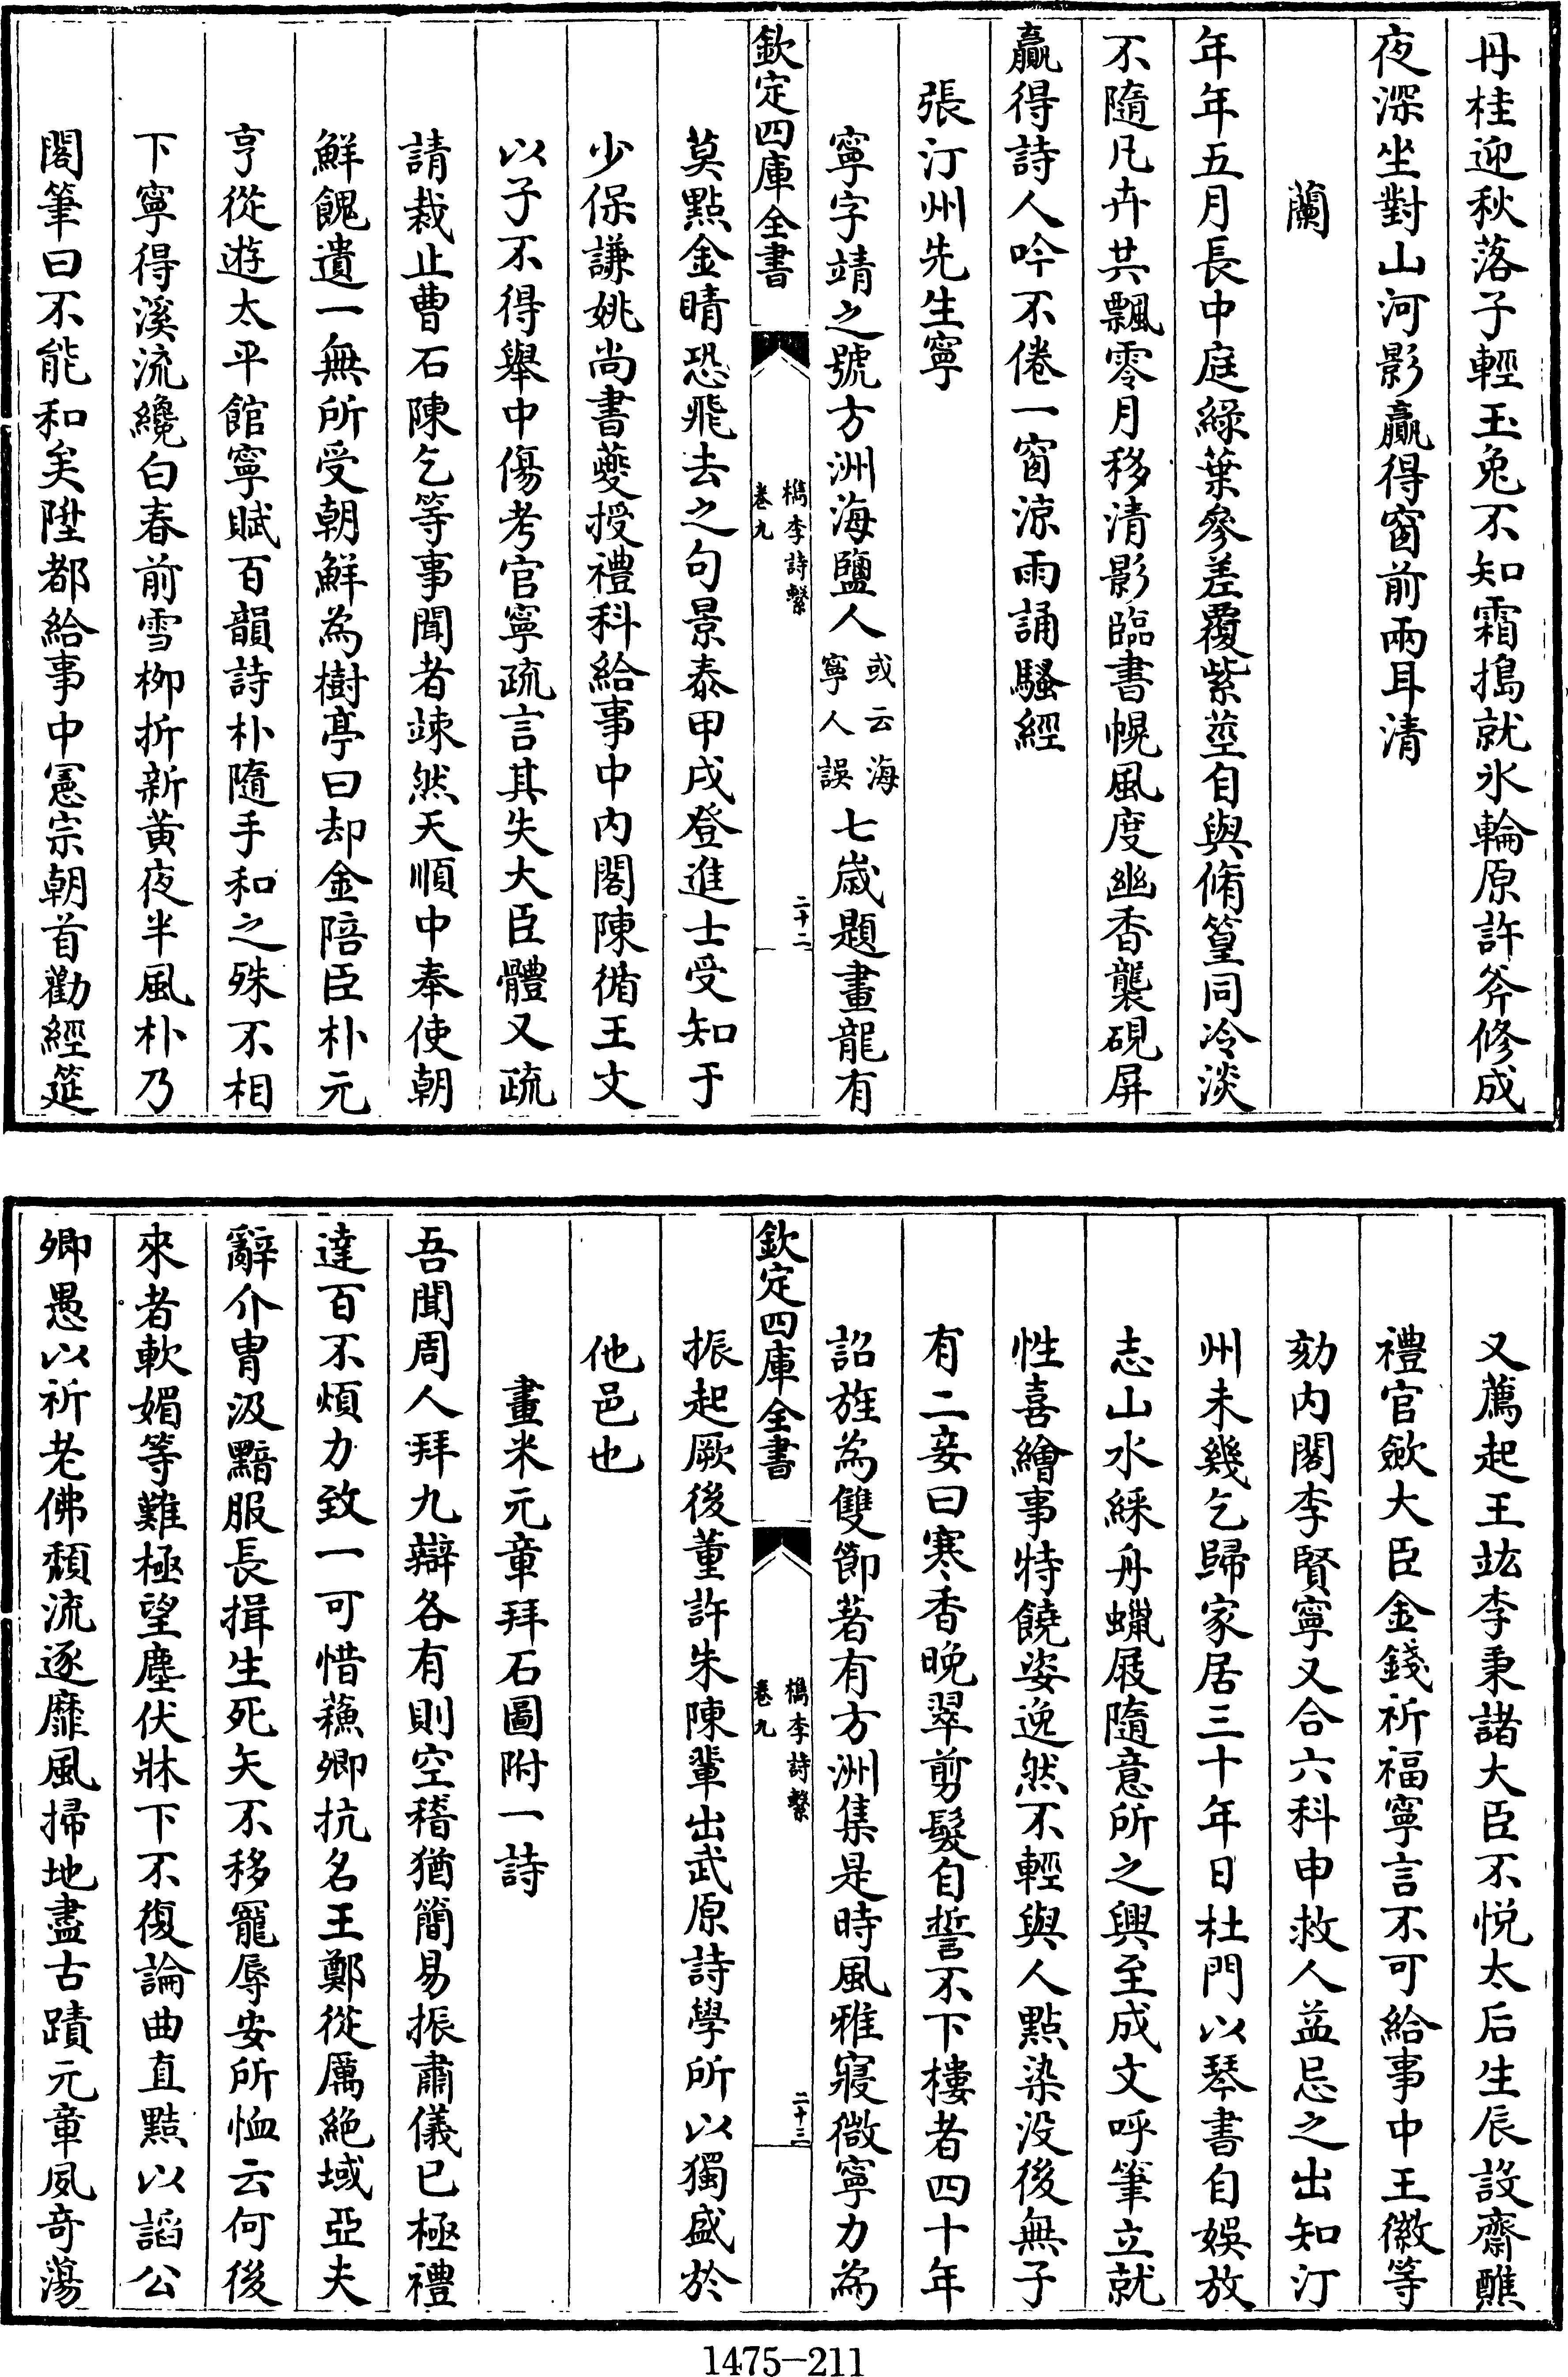 丹桂迎秋落子輕玉兔不知霜搗就氷輪原許斧修成
夜深坐對山河影贏得窗前兩耳清
蘭
年年五月長中庭綠葉參差覆紫莖自與脩篁同冷淡
不隨凡卉共飄零月移清影臨書幌風度幽香襲硯屏
贏得詩人吟不倦一窗涼雨誦騷經
張汀州先生寧
寧字靖之號方洲海鹽人或云海寧人誤七歲題畫龍有
欽定四庫全書
檇李詩繫
卷九
二十二
莫點金睛恐飛去之句景泰甲戌登進士受知于
少保謙姚尚書夔授禮科給事中内閣陳循王文
以子不得舉中傷考官寧疏言其失大臣體又疏
請裁止曹石陳乞等事聞者竦然天順中奉使朝
鮮餽遺一無所受朝鮮為樹亭曰却金陪臣朴元
亨從遊太平館寧賦百韻詩朴隨手和之殊不相
下寧得溪流纔白春前雪栁折新黄夜半風朴乃
閣筆曰不能和矣陞都給事中憲宗朝首勸經筵
又薦起王竑李秉諸大臣不悦太后生辰設齋醮
禮官歛大臣金錢祈福寧言不可給事中王徽等
劾内閣李賢寧又合六科申救人益忌之出知汀
州未幾乞歸家居三十年日杜門以琴書自娛放
志山水綵舟蠟屐隨意所之興至成文呼筆立就
性喜繪事特饒姿逸然不輕與人點染没後無子
有二妾曰寒香晚翠剪髮自誓不下樓者四十年
詔旌為雙節著有方洲集是時風雅寢微寧力為
欽定四庫全書
檇李詩繫
卷九
二十三
振起厥後董許朱陳輩出武原詩學所以獨盛於
他邑也
畫米元章拜石圖附一詩
吾聞周人拜九辯各有則空稽猶簡易振肅儀已極禮
達百不煩力致一可惜蘓卿抗名王鄭從厲絕域亞夫
辭介胄汲黯服長揖生死矢不移寵辱安所恤云何後
來者軟媚等難極望塵伏牀下不復論曲直點以謟公
卿愚以祈老佛頹流逐靡風掃地盡古蹟元章夙奇蕩
1475-211